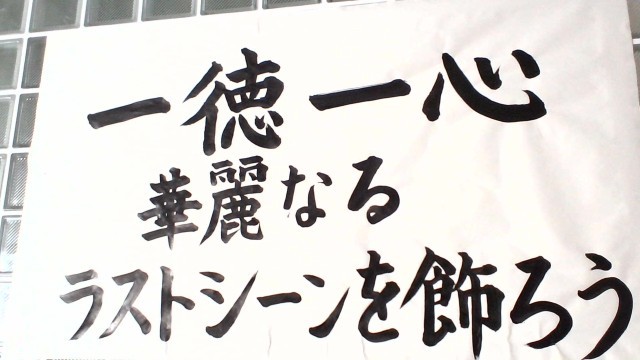 一徳一心
華麗なる
ラストシーンを飾ろう